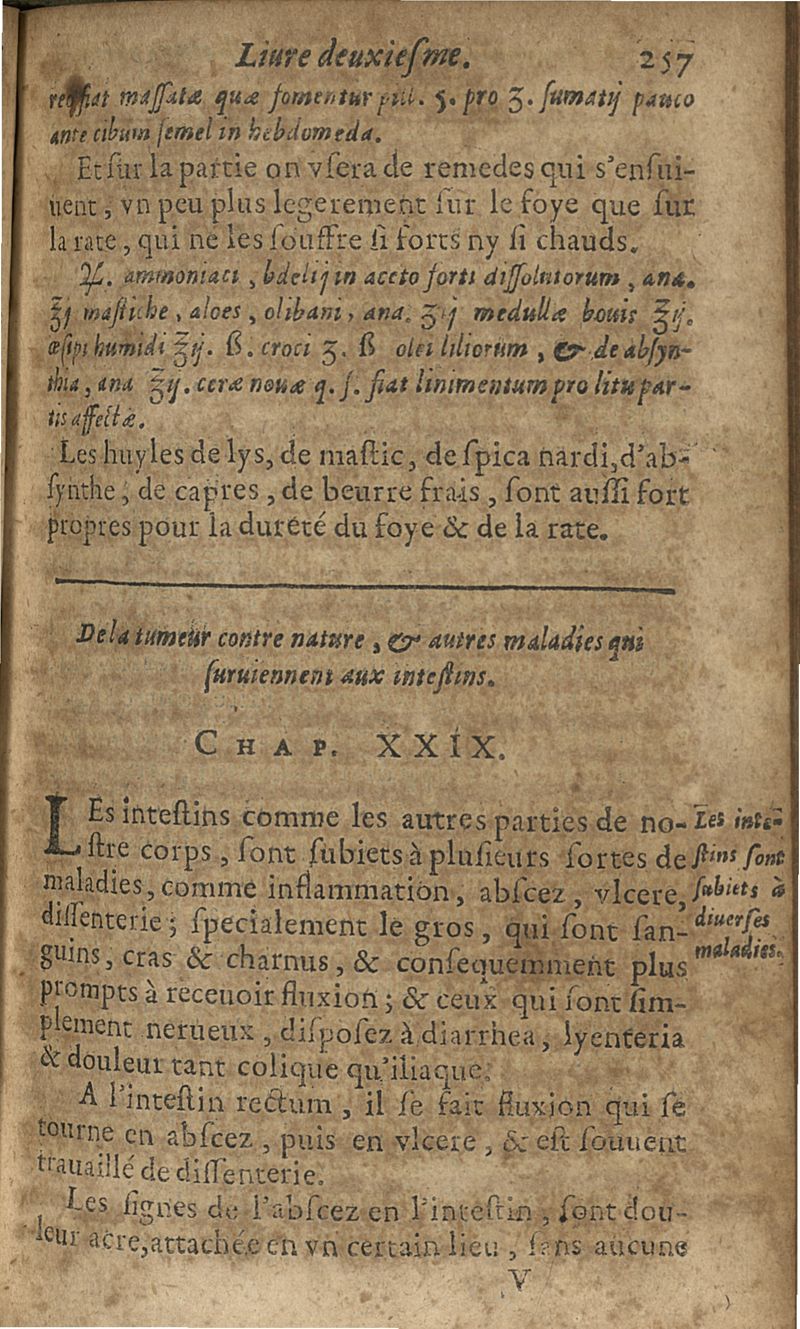 Liure deuxieſme. 257
fiat maſſatæ quæ fomentur pill. 5. pro ʒ. ſumatij pauco
ante cibum ſemel in hebdomeda.
Et ſur la partie on vſera de remedes qui s'enſui-
uent, vn peu plus legerement ſur le foye que ſur
la rate, qui ne les ſouffre ſi forts ny ſi chauds.
℞. ammoniaci, bdelij in aceto forti diſſolutorum, ana.
ʒj maſtiche, aloes, olibani, ana. ʒij medullæ bouis ℥ij.
œſipi humidi ℥ij. ß. croci ʒ. ß olei liliorum, & de abſyn-
thia, ana ℥ij. ceræ nouæ q. ſ. fiat linimentum pro litu par-
tis affectæ.
Les huyles de lys, de maſtic, de ſpica nardi, d'ab-
ſynthe, de capres, de beurre frais, ſont auſſi fort
propres pour la dureté du foye & de la rate.
De la tumeur contre nature, & autres maladies qui
ſuruiennent aux inteſtins.
CHAP. XXIX.
LEs inteſtins comme les autres parties de no-
ſtre corps, ſont ſubiets à pluſieurs ſortes de
maladies, comme inflammation, abſcez, vlcere,
diſſenterie; ſpecialement le gros, qui ſont ſan-
guins, cras & charnus, & conſequemment plus
prompts à receuoir fluxion; & ceux qui ſont ſim-
plement nerueux, diſpoſez à diarrhea, lyenteria
& douleur tant colique qu'iliaque.
A l'inteſtin rectum, il ſe fait fluxion qui ſe
tourne en abſcez, puis en vlcere, & eſt ſouuent
trauaillé de diſſenterie.
Les ſignes de l'abſcez en l'inteſtin, ſont dou-
leur acre, attachée en vn certain lieu, ſans aucune
V
Les inte-
ſtins ſont
ſubiets à
diuerſes
maladies.